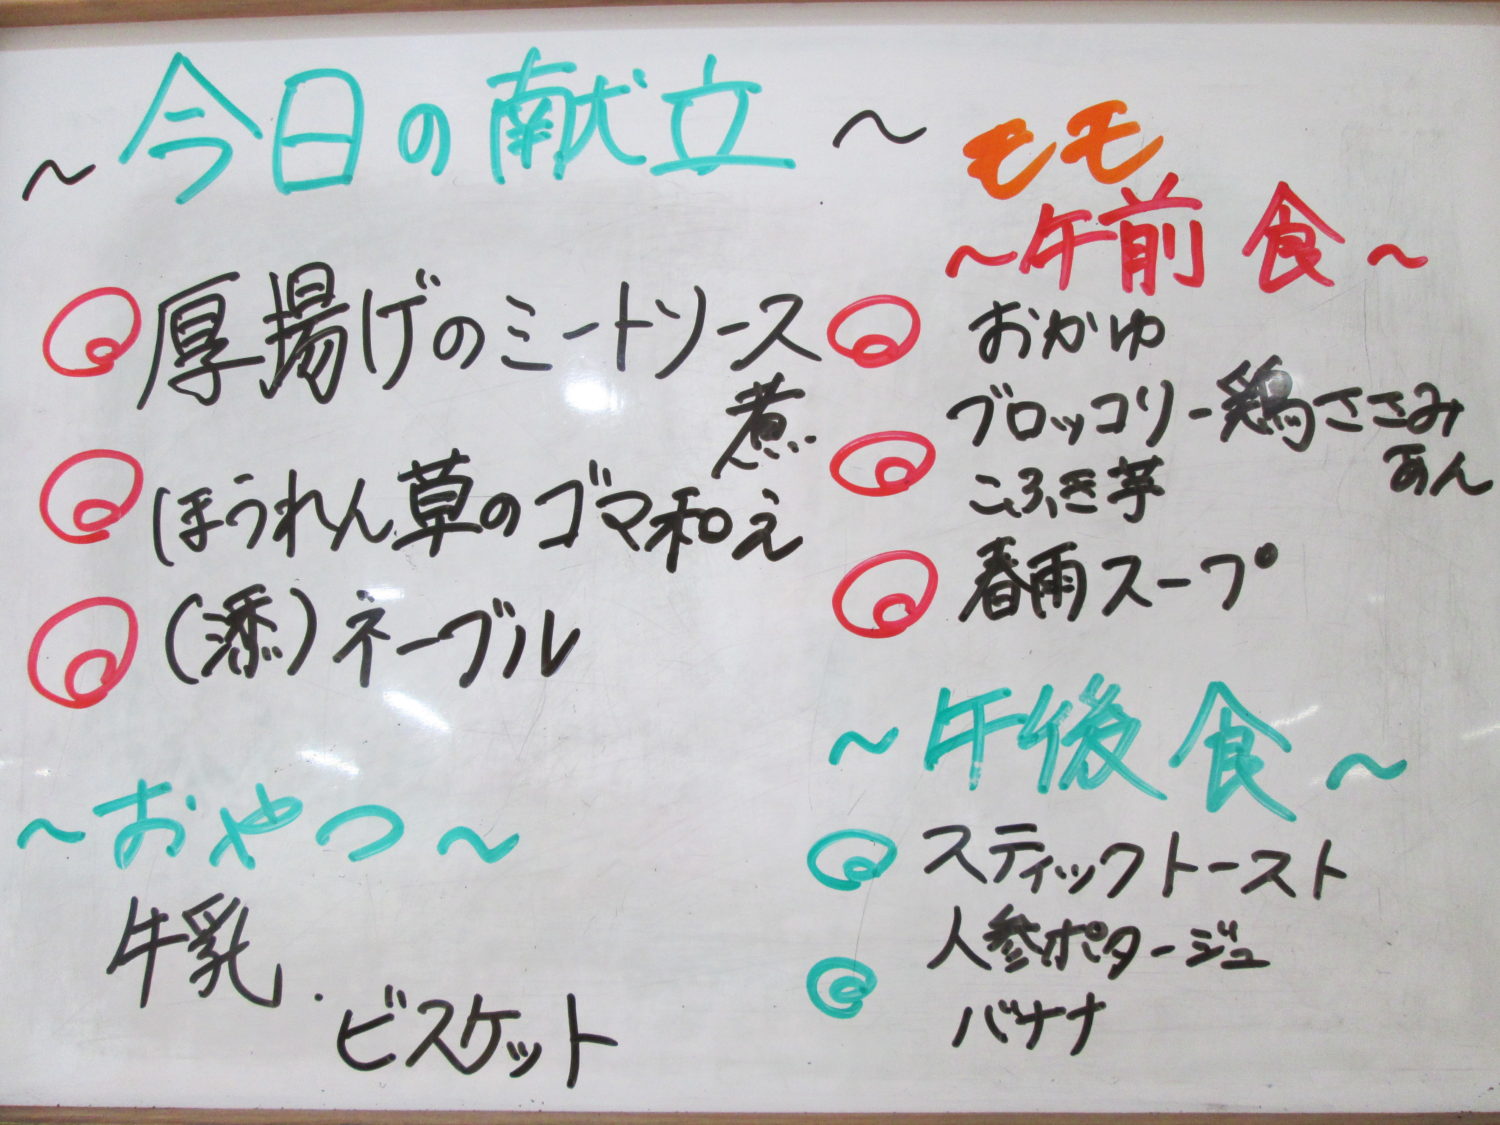 ～今日の献立～
厚揚げのミートソース
煮
ほうれん草のゴマ和え
(添)ネーブル
～おやつ～
牛乳.
ビスケット
モモ
～午前食～
おかゆ
ブロッコリー鶏ささみ
あん
こふき芋
春雨スープ
～午後食～
スティックトースト
人参ポタージュ
バナナ